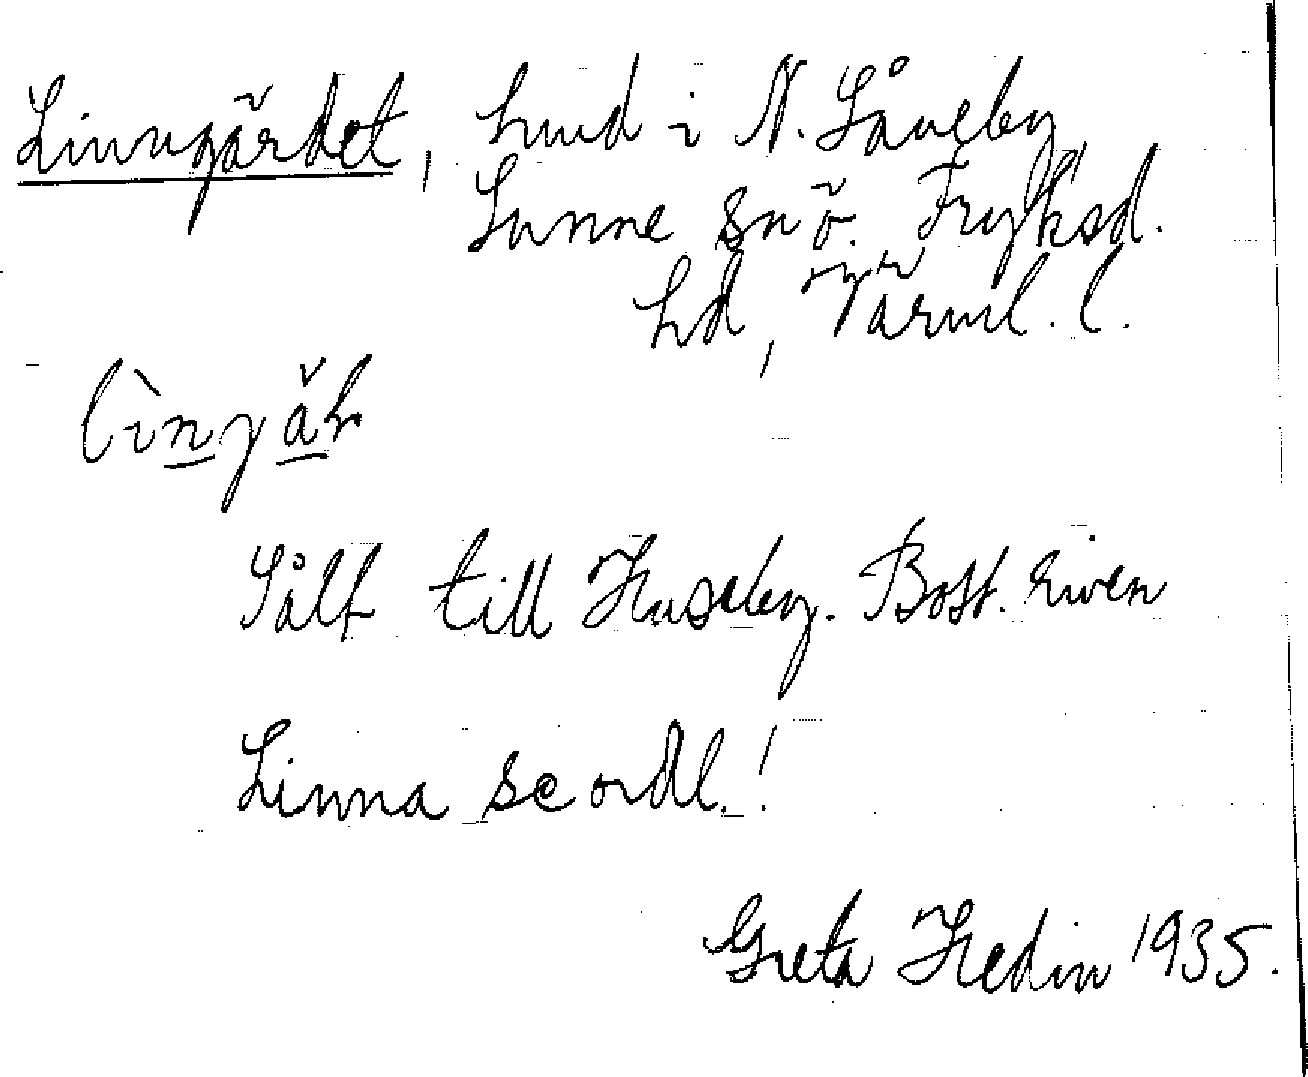 Linngärdet, hmd i N. Såneby
Sunne sn ö. Fryksd.
hd, Värml. l.
Sålt till Huseby. Bost. riven
Linna se ordl.!
Greta Hedin 1935.